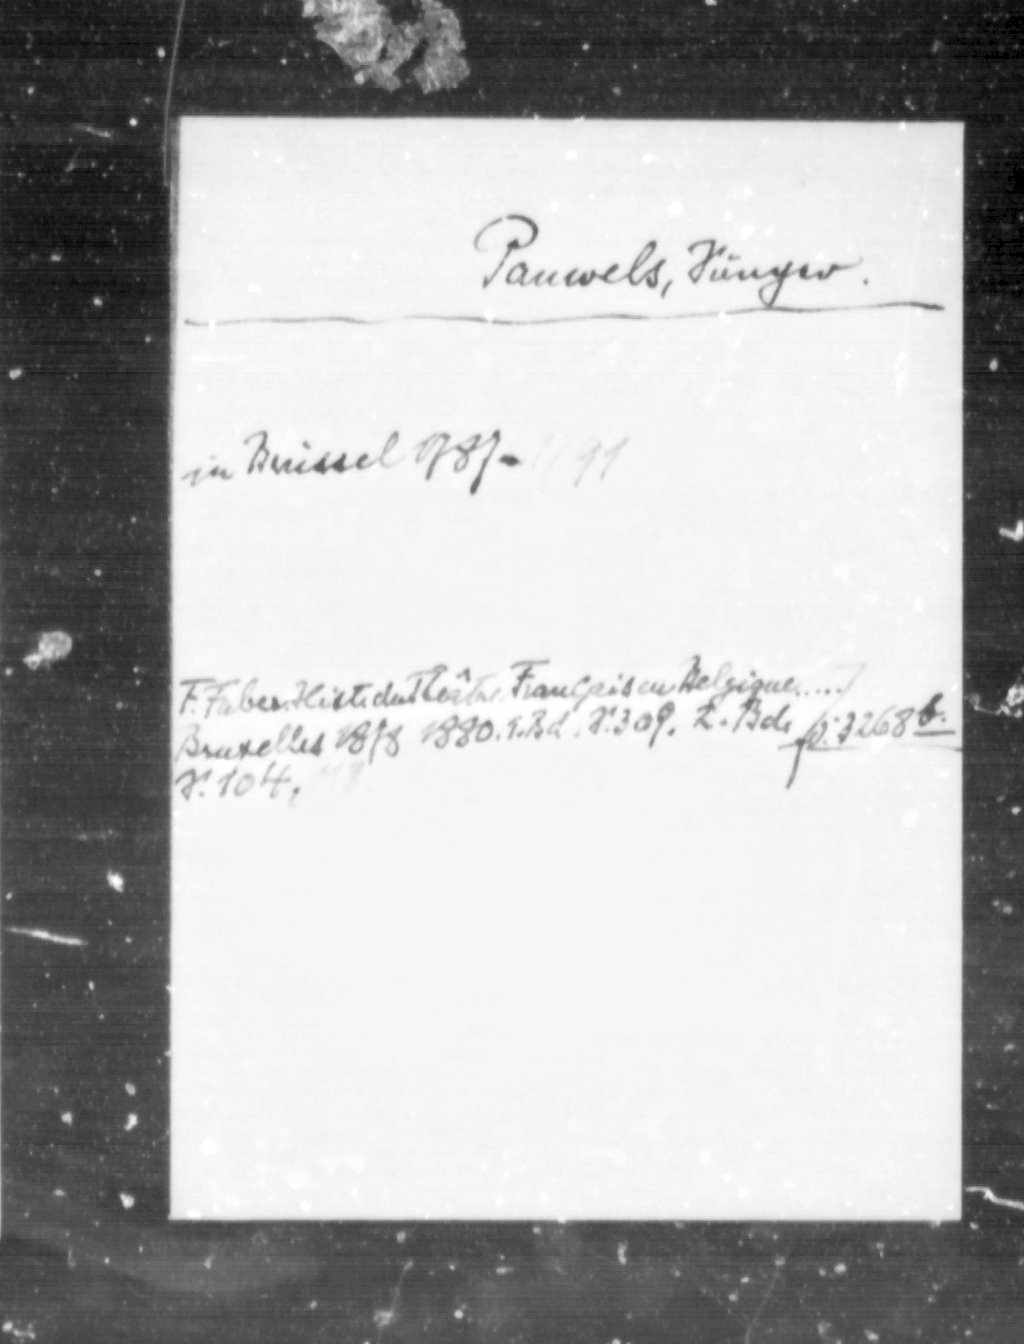 Pauwels, Sänger.
in Brüssel 1787- 1791
F. Faber. Hist. du Théâtre Français en Belgique.....
Bruxelles 1878 1880. 1. Bd. S. 309. 2. Bd. p. 3268 b.
S. 104.